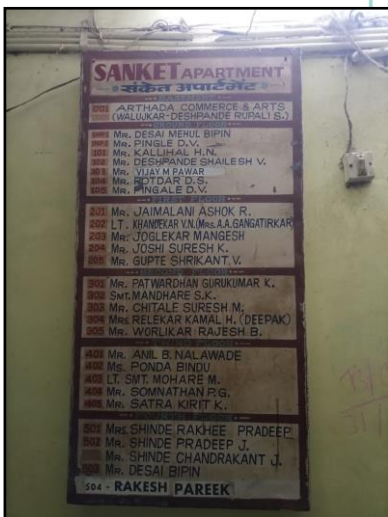 SANKET APARTMENT
संकेत अपार्टमेंट
001 ARTHADA COMMERCE & ARTS
(WALUJKAR-DESHPANDE RUPALI S.)
GROUND FLOOR
MR. DESAI MEHUL BIPIN
MR. PINGLE D.V.
101 KALLIHAL H.N.
102 MR. DESHPANDE SHAILESH V.
103 MR. VIJAY M PAWAR
104 MR. POTDAR D.S.
105 MR. PINGALE D.V.
FIRST FLOOR
201 MR. JAIMALANI ASHOK R.
202 LT. KHANDEKAR V.N.(MRS.A.A.GANGATIRKAR)
203 MR. JOGLEKAR MANGESH
204 MR. JOSHI SURESH K.
205 MR. GUPTE SHRIKANT.V.
SECOND FLOOR
301 MR. PATWARDHAN GURUKUMAR K.
302 SMT. MANDHARE S.K.
303 MR. CHITALE SURESH M.
304 MRS RELEKAR KAMAL H. (DEEPAK)
305 MR. WORLIKAR RAJESH B.
THIRD FLOOR
401 MR. ANIL B. NALAWADE
402 MS. PONDA BINDU
403 LT. SMT. MOHARE M.
404 MR. SOMNATHAN P.G.
405 MR. SATRA KIRIT K.
FLOOR
501 MRS. SHINDE RAKHEE PRADEEP
502 MR. SHINDE PRADEEP J.
MR. SHINDE CHANDRAKANT J.
503 MR. DESAI BIPIN
504 - RAKESH PAREEK